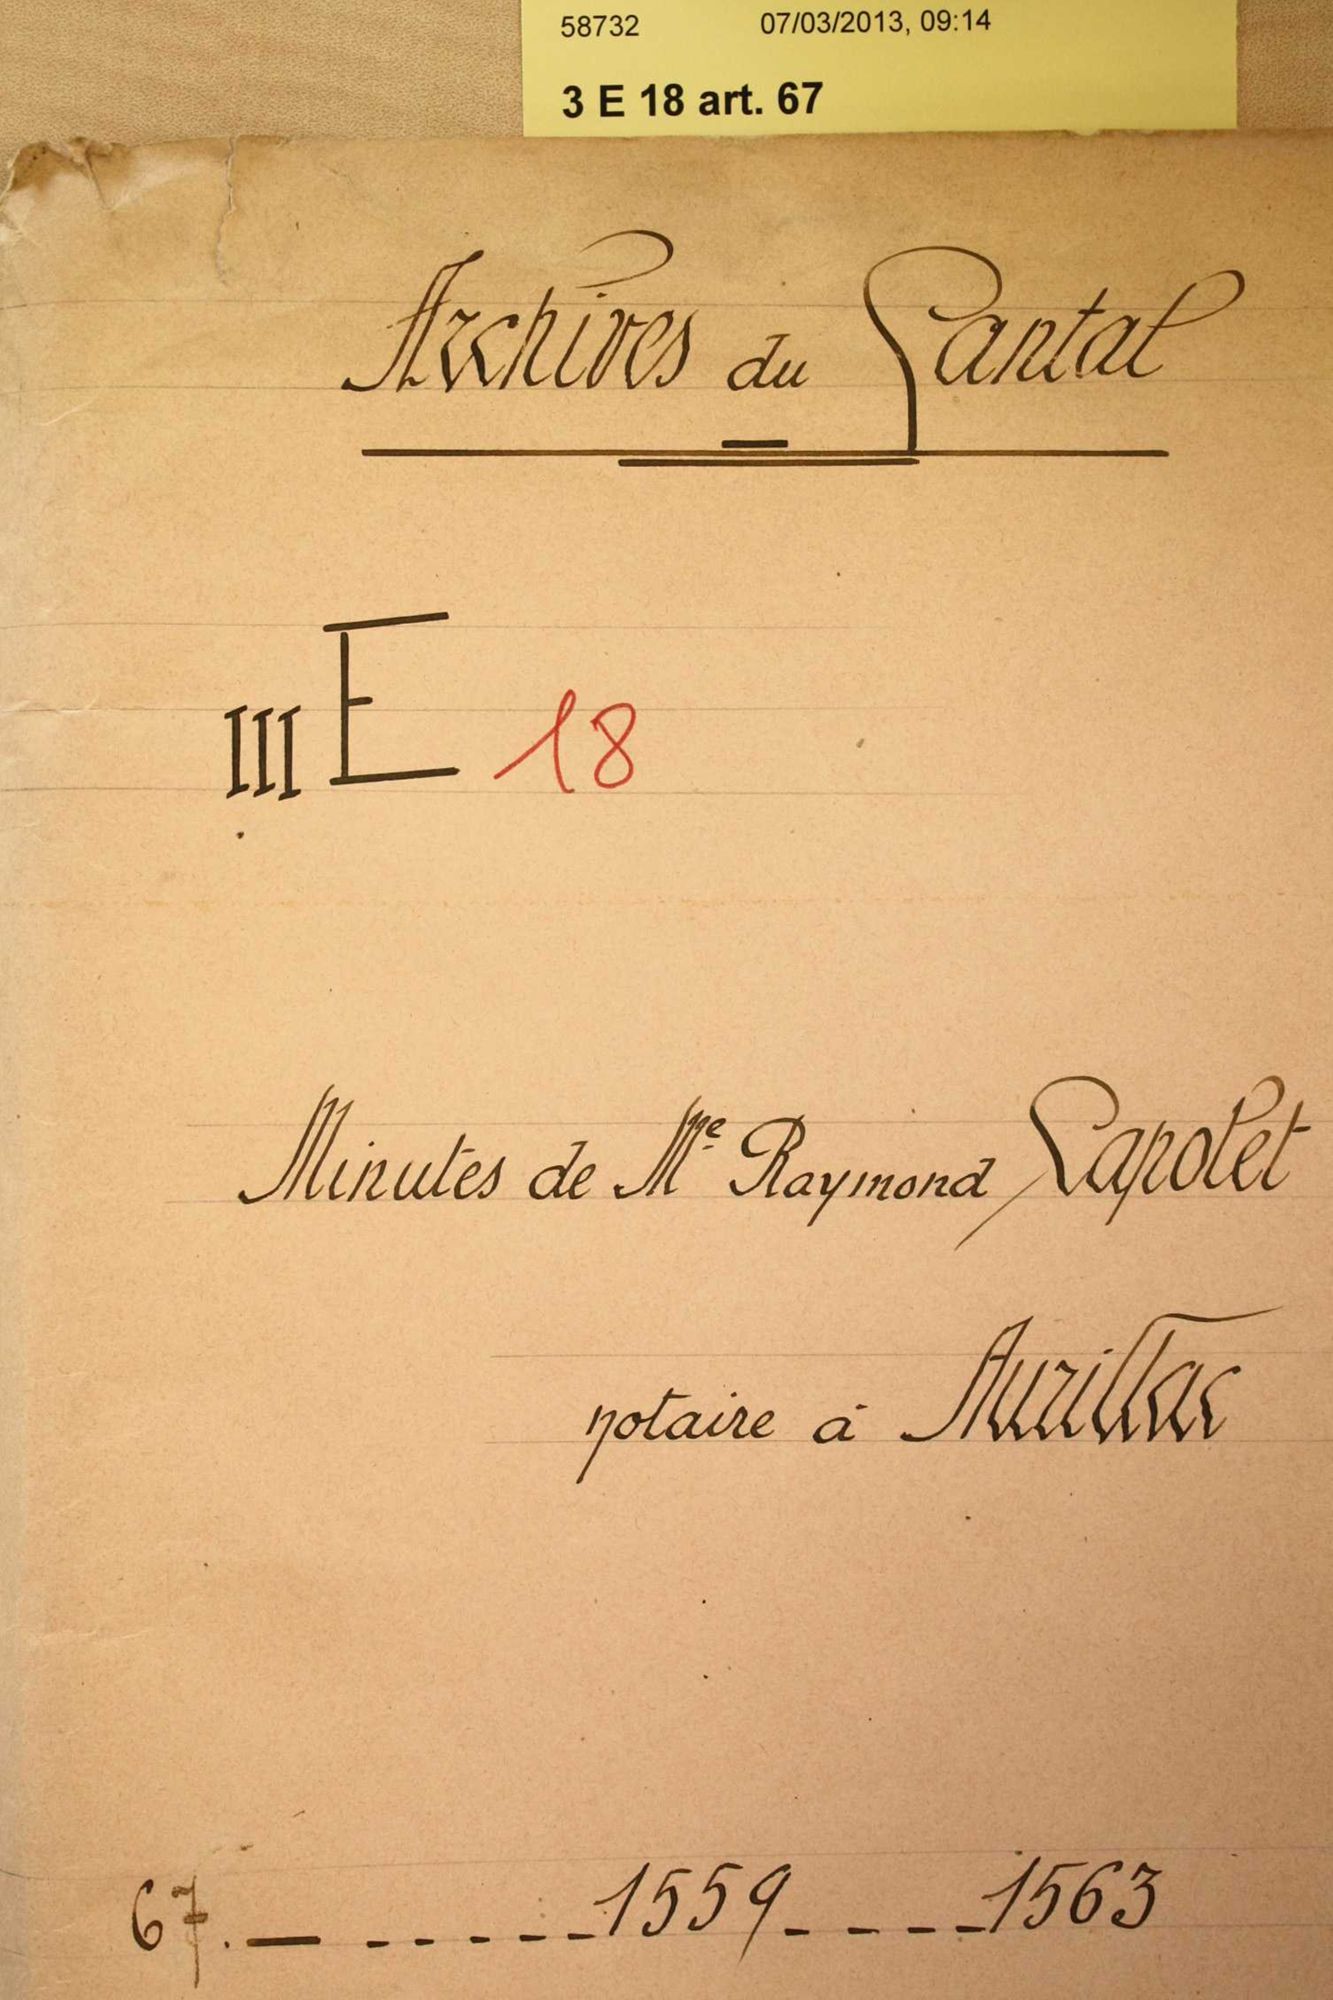 58732 07/03/2013, 09:14
3 E 18 art. 67
Archives du Cantal
III E 18
Minutes de Me Raymond Lapolet
notaire à Aurillac
67. — - - - - - 1559 - - - - 1563